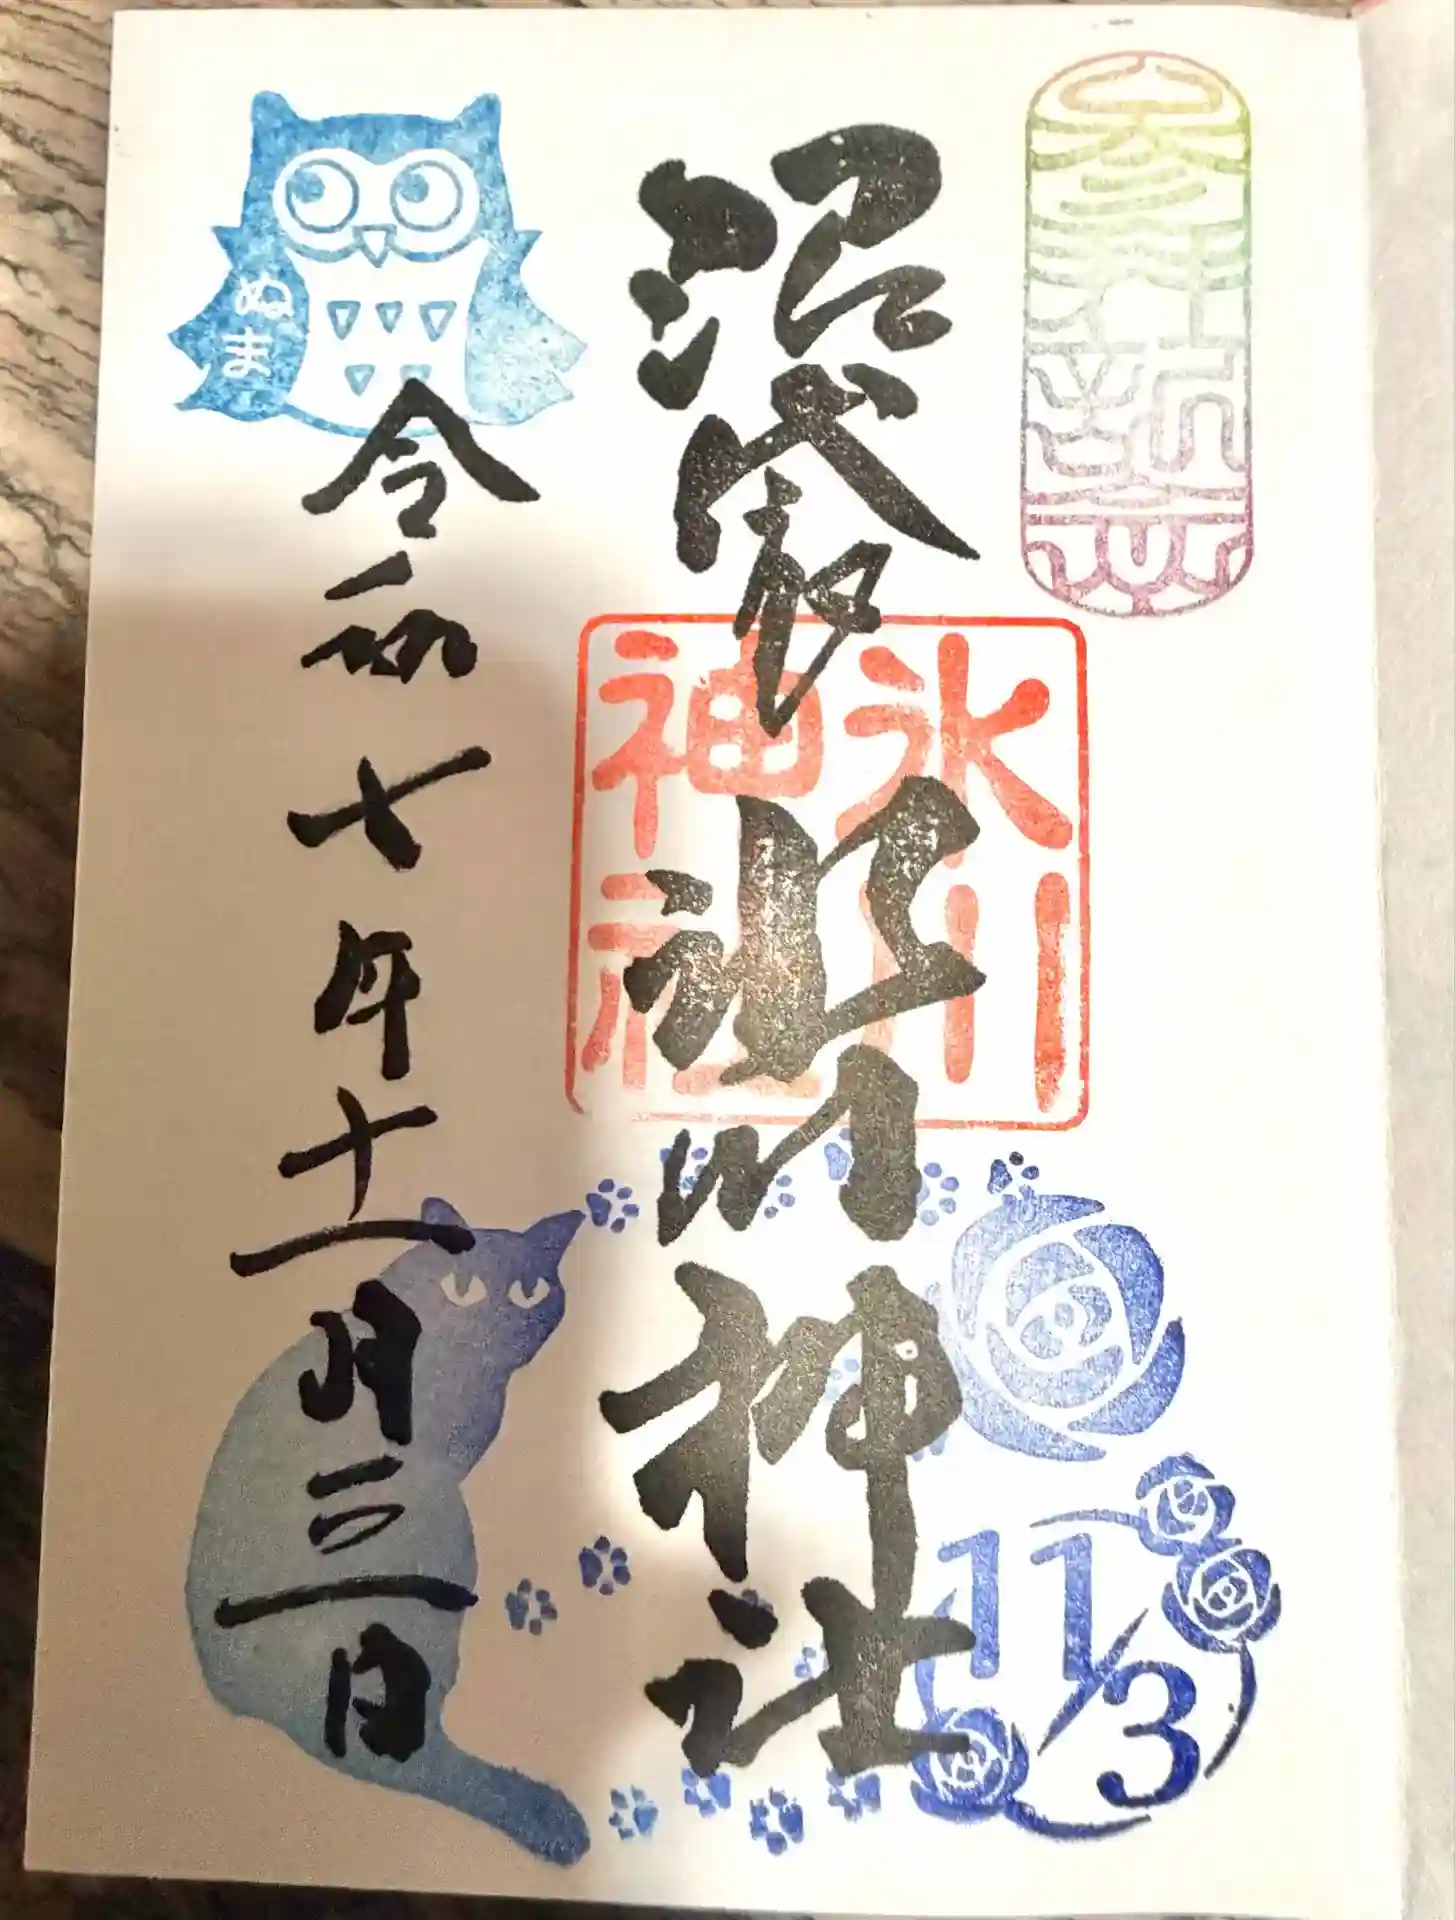 天参道新栄
沼袋
氷川神社
氷川
神社
11/3
ぬま
令和七年十一月三日